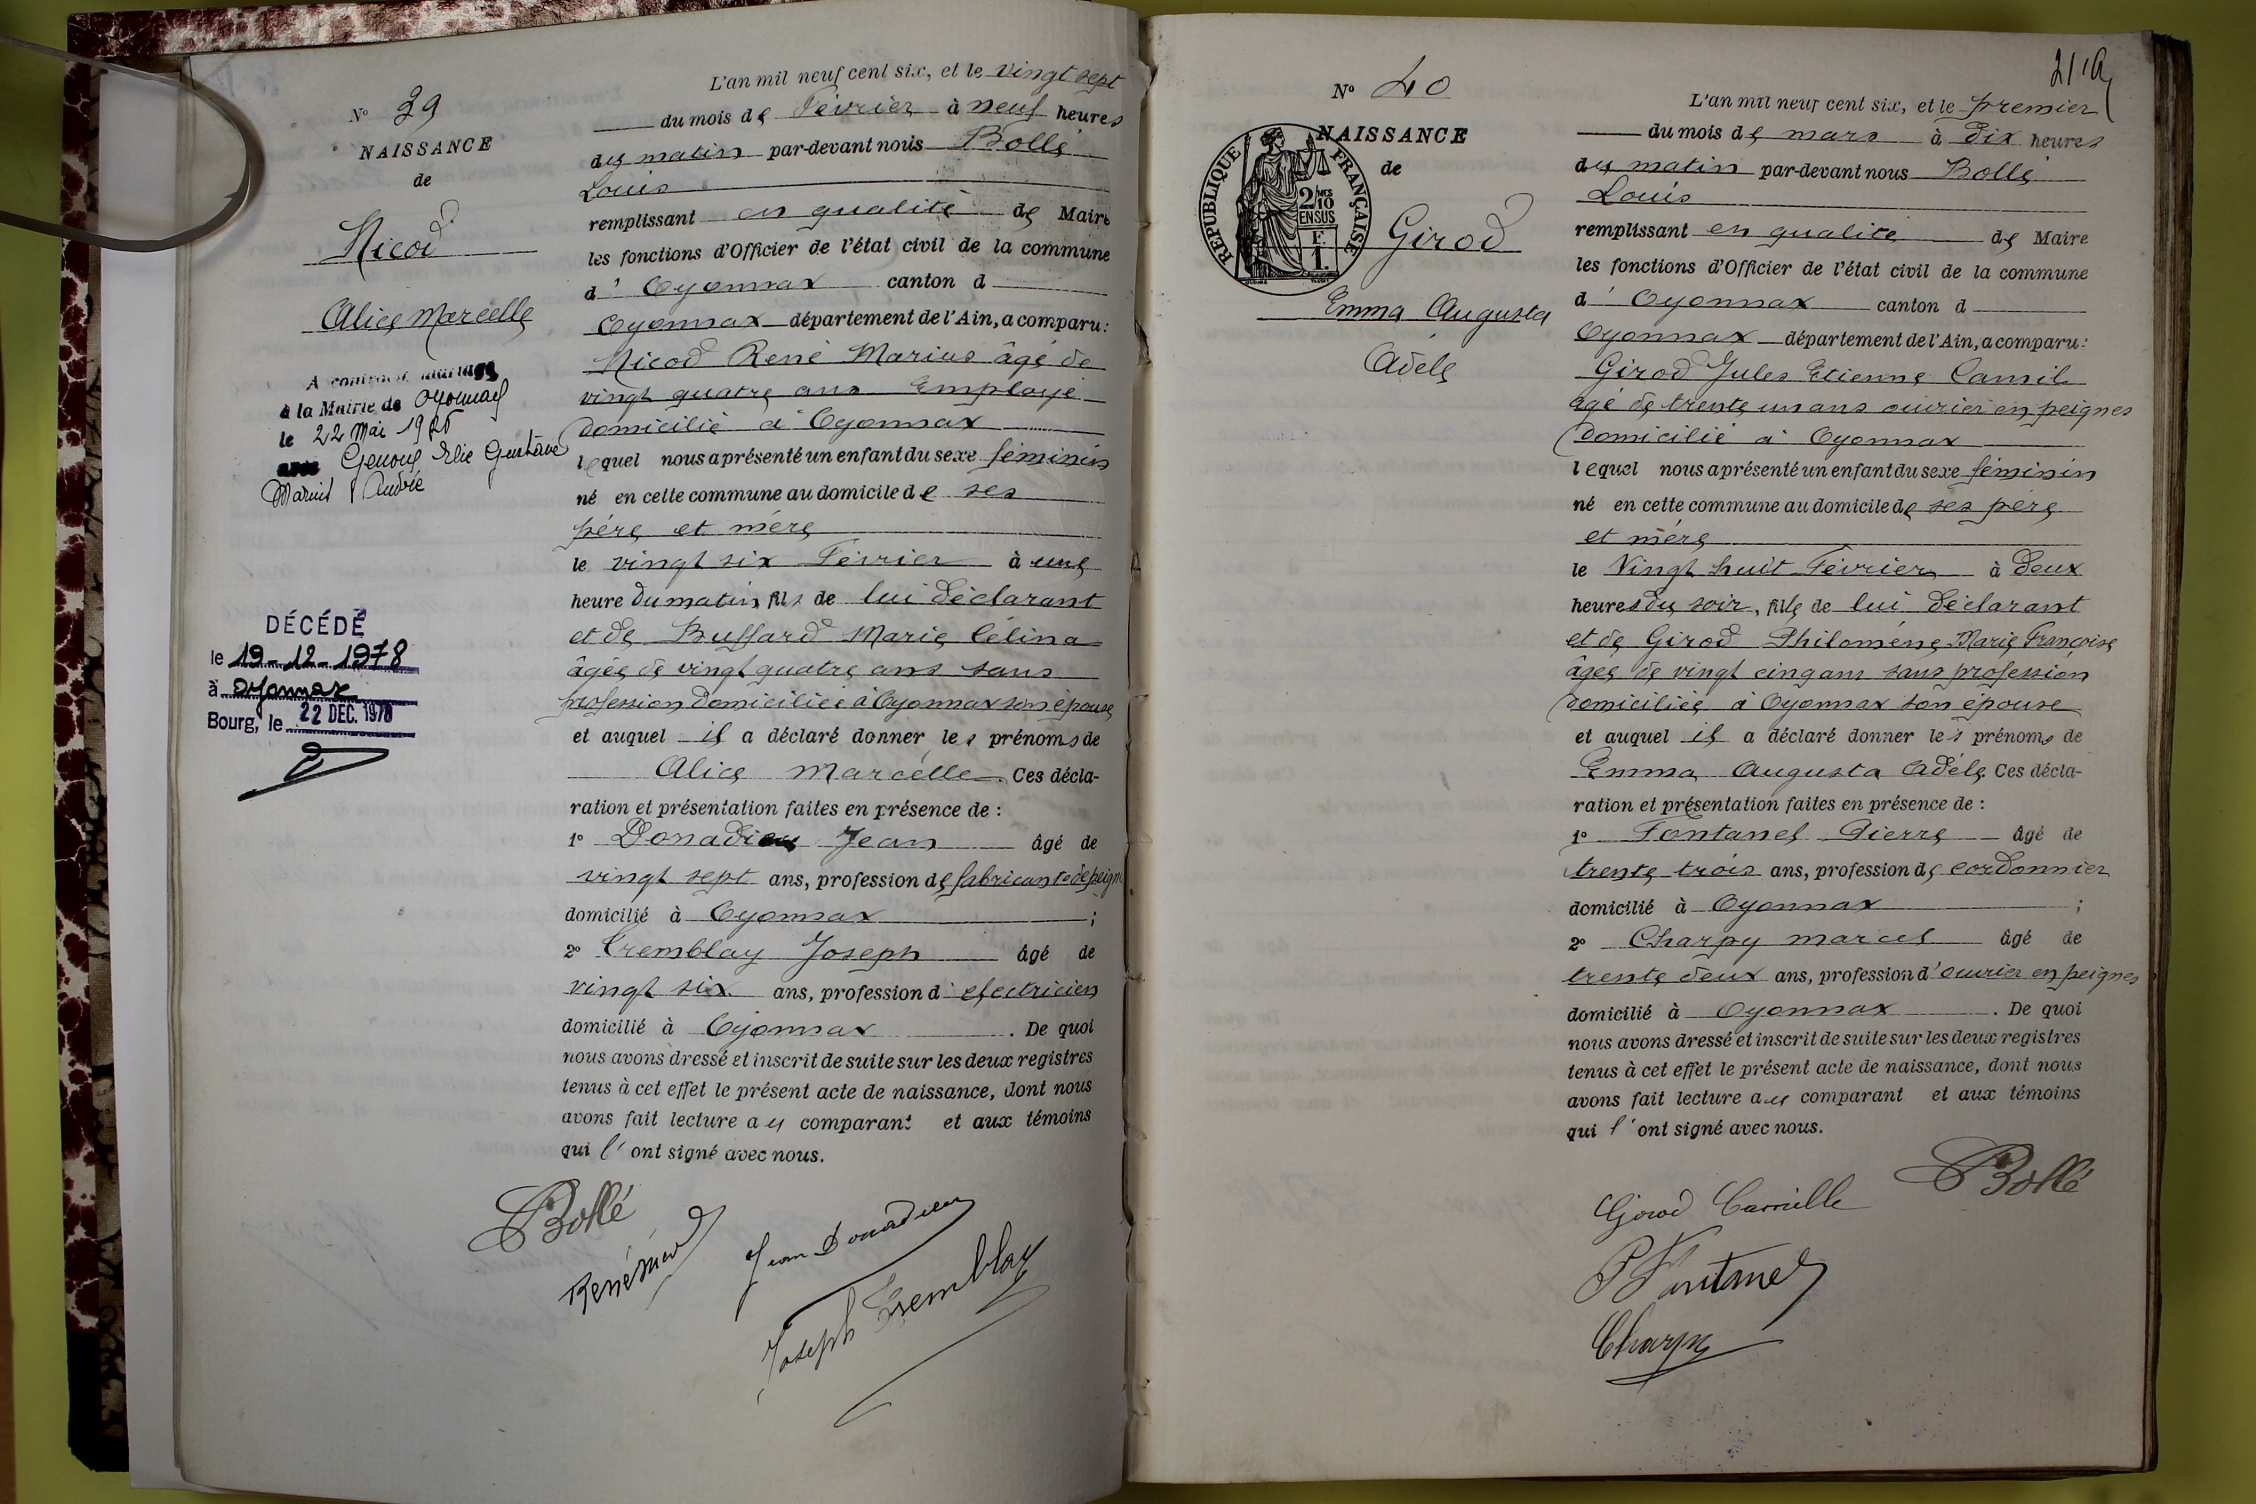 N° 39
NAISSANCE
de
Nicod
Alice Marcelle
A contracté mariage
à la Mairie de Oyonnax
le 22 Mai 1926
avec Genoux Elie Gustave
Marius André
DÉCÉDÉ
le 19-12-1978
à Oyonnax
Bourg, le 22 DEC. 1978
L'an mil neuf cent six, et le vingt sept
du mois de Février à neuf heures
du matin par-devant nous Bollé
Louis
remplissant en qualité de Maire
les fonctions d'Officier de l'état civil de la commune
d' Oyonnax canton d
Oyonnax département de l'Ain, a comparu:
Nicod René Marius âgé de
vingt quatre ans Employé
domicilié à Oyonnax
lequel nous a présenté un enfant du sexe féminin
né en cette commune au domicile de ses
père et mère
le vingt six Février à une
heure du matin, fils de lui déclarant
et de Buffard Marie Célina
âgée de vingt quatre ans sans
profession domiciliée à Oyonnax son épouse
et auquel il a déclaré donner les prénoms de
Alice Marcelle. Ces décla-
ration et présentation faites en présence de :
1° Donadieu Jean âgé de
vingt sept ans, profession de fabricant de peign
domicilié à Oyonnax ;
2° Tremblay Joseph âgé de
vingt six ans, profession d' électricien
domicilié à Oyonnax . De quoi
nous avons dressé et inscrit de suite sur les deux registres
tenus à cet effet le présent acte de naissance, dont nous
avons fait lecture au comparant et aux témoins
qui l' ont signé avec nous.
Bollé
René Nicod
Jean Donadieu
Joseph Tremblay
21
N° 40
NAISSANCE
de
RÉPUBLIQUE FRANÇAISE
2/10 EN SUS
F. 1.
Girod
Emma Augusta
Adèle
L'an mil neuf cent six, et le premier
du mois de mars à dix heures
du matin par-devant nous Bollé
Louis
remplissant en qualité de Maire
les fonctions d'Officier de l'état civil de la commune
d' Oyonnax canton d
Oyonnax département de l'Ain, a comparu:
Girod Jules Etienne Camil
âgé de trente un ans ouvrier en peignes
domicilié à Oyonnax
lequel nous a présenté un enfant du sexe féminin
né en cette commune au domicile de ses père
et mère
le Vingt huit Février à deux
heures du soir, fille de lui déclarant
et de Girod Philomène Marie Françoise
âgée de vingt cinq ans sans profession
domiciliée à Oyonnax son épouse
et auquel il a déclaré donner les prénoms de
Emma Augusta Adèle. Ces décla-
ration et présentation faites en présence de :
1° Fontanel Pierre âgé de
trente trois ans, profession de cordonnier
domicilié à Oyonnax ;
2° Charpy marcel âgé de
trente deux ans, profession d' ouvrier en peignes
domicilié à Oyonnax . De quoi
nous avons dressé et inscrit de suite sur les deux registres
tenus à cet effet le présent acte de naissance, dont nous
avons fait lecture au comparant et aux témoins
qui l' ont signé avec nous.
Bollé
Girod Camille
P Fontanel
Charpy